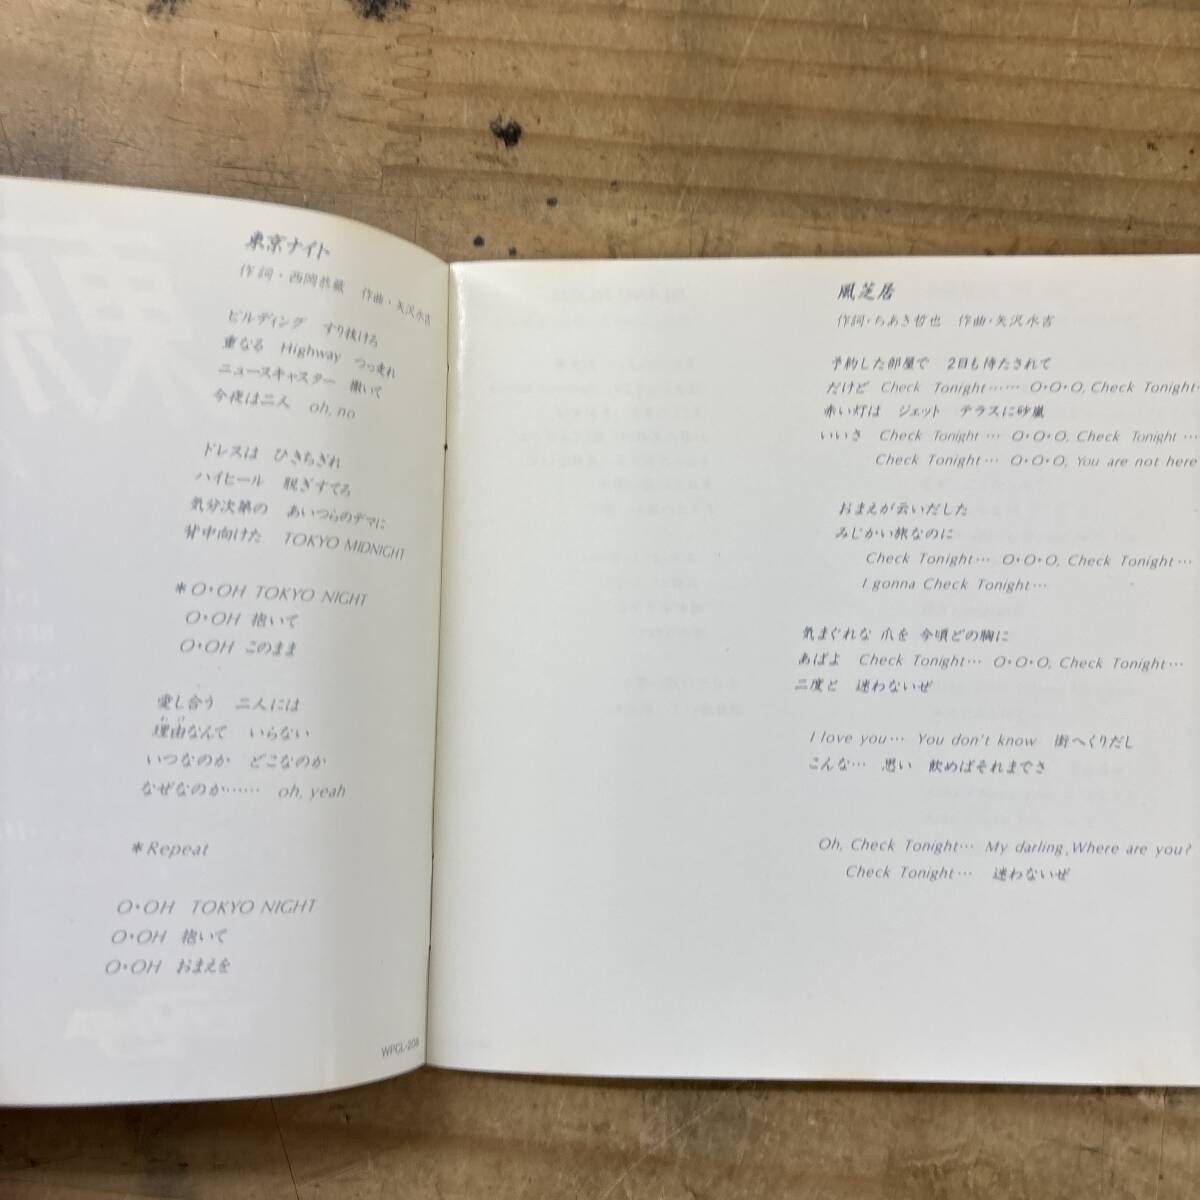 東京ナイト
作詞・西岡恭蔵 作曲・矢沢永吉
ビルディング すり抜けろ
重なる Highway つっ走れ
ニュースキャスター 撒いて
今夜は二人 oh, no
ドレスは ひきちぎれ
ハイヒール 脱ぎすてろ
気分次第の あいつらのデマに
背中向けた TOKYO MIDNIGHT
*O・OH TOKYO NIGHT
O・OH 抱いて
O・OH このまま
愛し合う 二人には
理由なんて いらない
いつなのか どこなのか
なぜなのか…… oh, yeah
*Repeat
O・OH TOKYO NIGHT
O・OH 抱いて
O・OH おまえを
WPCL-208
風芝居
作詞・ちあき哲也 作曲・矢沢永吉
予約した部屋で 2日も待たされて
だけど Check Tonight…… O・O・O, Check Tonight…
赤い灯は ジェット テラスに砂嵐
いいさ Check Tonight… O・O・O, Check Tonight…
Check Tonight… O・O・O, You are not here
おまえが云いだした
みじかい旅なのに
Check Tonight… O・O・O, Check Tonight…
I gonna Check Tonight…
気まぐれな 爪を 今頃どの胸に
あばよ Check Tonight… O・O・O, Check Tonight…
二度と 迷わないぜ
I love you… You don't know 街へくりだし
こんな… 思い 飲めばそれまでさ
Oh, Check Tonight… My darling, Where are you?
Check Tonight… 迷わないぜ